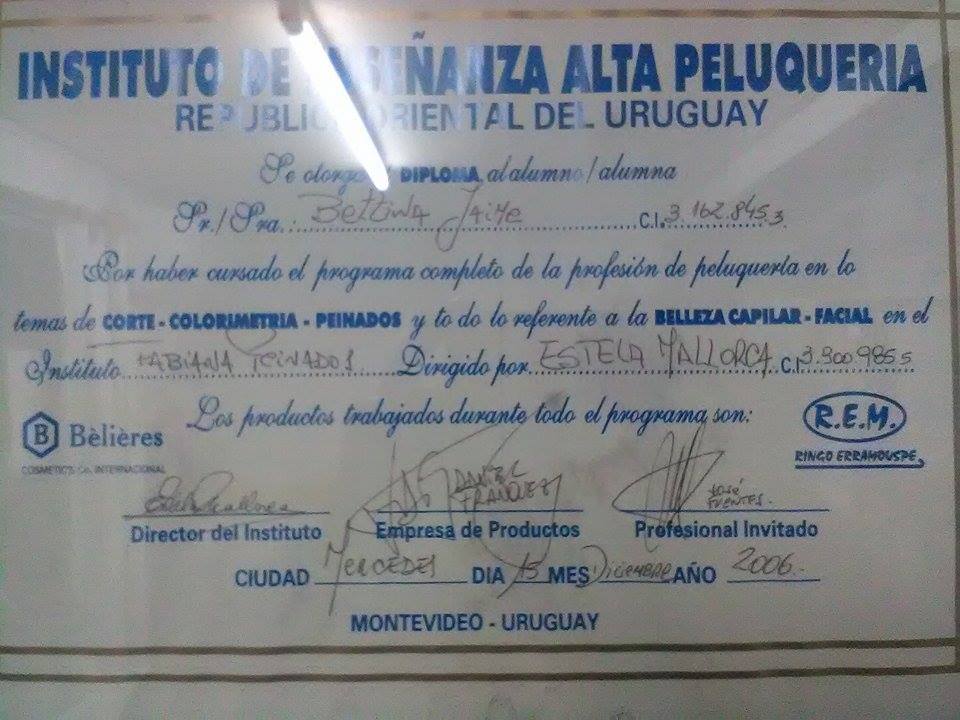 INSTITUTO DE ENSEÑANZA ALTA PELUQUERIA
REPUBLICA ORIENTAL DEL URUGUAY
Se otorga DIPLOMA al alumno/alumna
Sr./Sra. Bettina Jaime C.I. 3.162.845.3
Por haber cursado el programa completo de la profesión de peluquería en lo
temas de CORTE - COLORIMETRIA - PEINADOS y to do lo referente a la BELLEZA CAPILAR - FACIAL en el
Instituto FABIANA PEINADOS Dirigido por ESTELA MALLORCA C.I. 3.900.985.5
Los productos trabajados durante todo el programa son:
B Bèlières
COSMETICS Co. INTERNACIONAL
R.E.M.
RINGO ERRAMOUSPE
DANIEL FRANQUEZ
JOSÉ FUENTES.
Director del Instituto Empresa de Productos Profesional Invitado
CIUDAD MERCEDES DIA 15 MES Diciembre AÑO 2006.-
MONTEVIDEO - URUGUAY